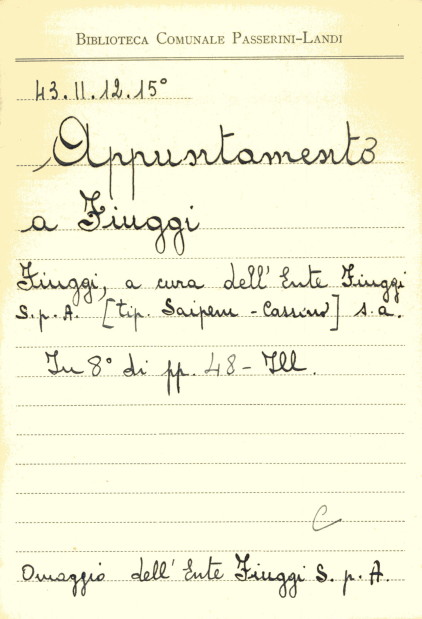 BIBLIOTECA COMUNALE PASSERINI-LANDI
43.II.12.15°
Appuntamento
a Fiuggi
Fiuggi, a cura dell'Ente Fiuggi
S.p.A. [tip. Saipem - Cassino] s.a.
In 8° di pp. 48 - Ill.
C
Omaggio dell'Ente Fiuggi S.p.A.